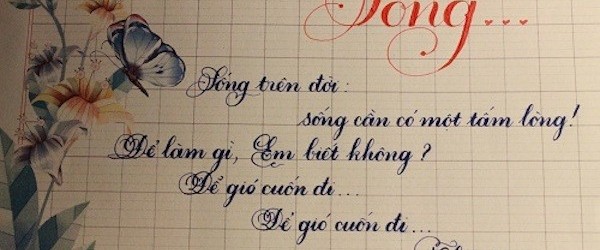 Sống...
Sống trên đời:
sống cần có một tấm lòng!
Để làm gì, Em biết không?
Để gió cuốn đi...
Để gió cuốn đi...